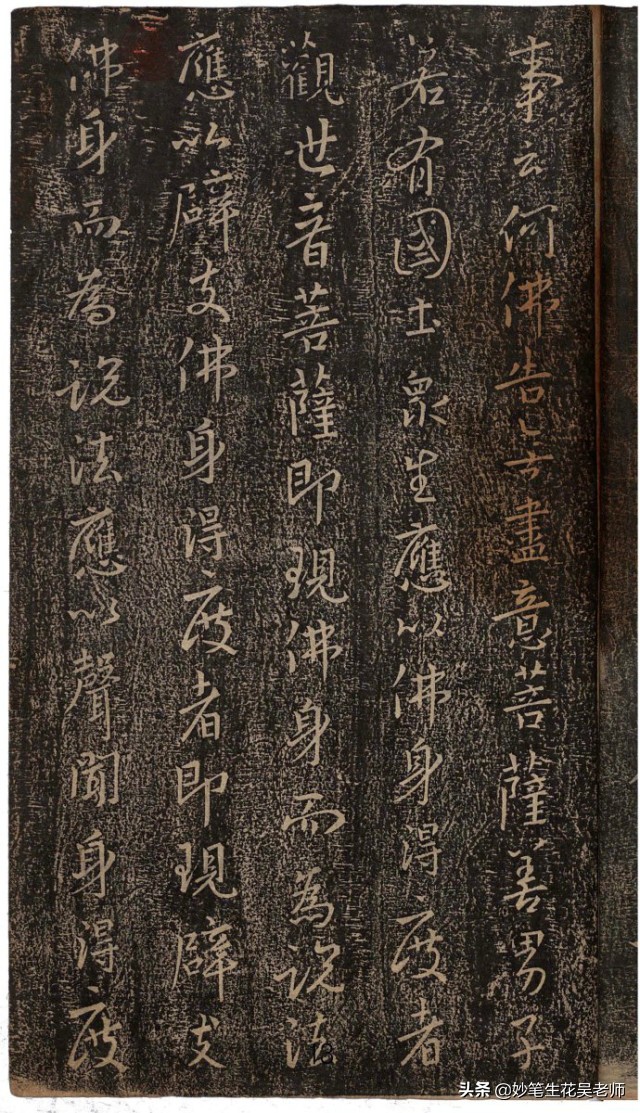 事云何佛告无盡意菩薩善男子
若有國土衆生應以佛身得度者
觀世音菩薩即現佛身而為説法
應以辟支佛身得度者即現辟支
佛身而為説法應以聲聞身得度
13
头条 @妙笔生花吴老师